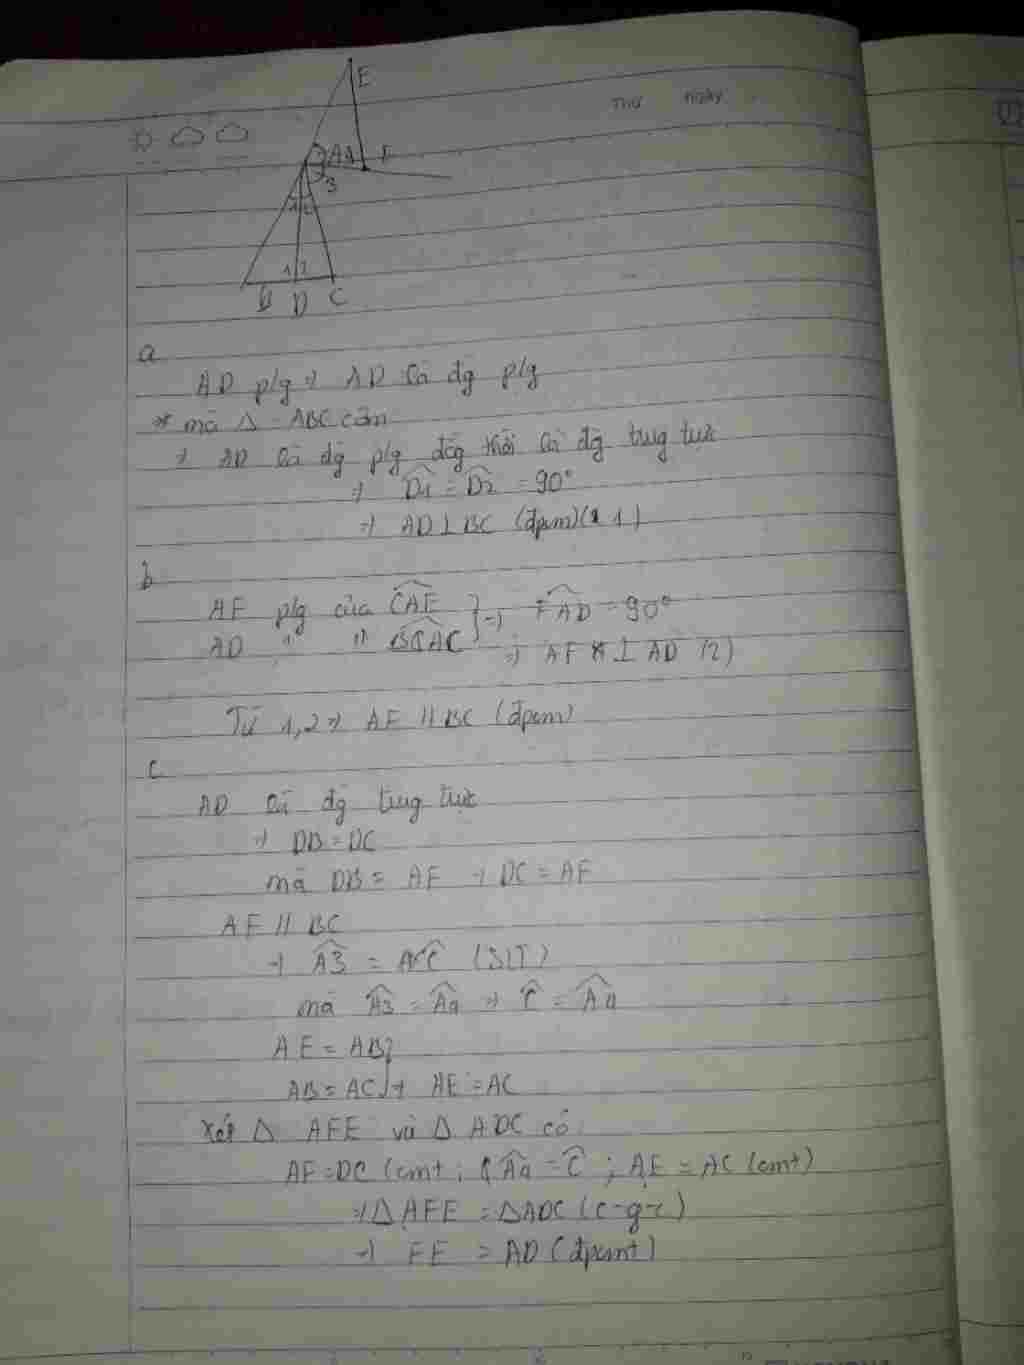 E
Thứ ngày
A 4 F
3
1 2
1 2
B D C
a
AD p/g => AD là đg p/g
mà Δ ABC cân
=> AD là đg p/g đồg thời là đg trug trực
=> D1 = D2 = 90°
=> AD ⊥ BC (đpcm) (1)
b
AF p/g của CAE } => FAD = 90°
AD " " BAC => AF ⊥ AD (2)
Từ 1,2 => AF // BC (đpcm)
c
AD là đg trug trực
=> DB = DC
mà DB = AF => DC = AF
AF // BC
=> A3 = C (SLT)
mà A3 = A4 => C = A4
AE = AB }
AB = AC } => AE = AC
Xét Δ AFE và Δ ADC có
AF = DC (cmt ; A4 = C ; AE = AC (cmt)
=> Δ AFE = Δ ADC (c-g-c)
=> FE = AD (đpcmt)